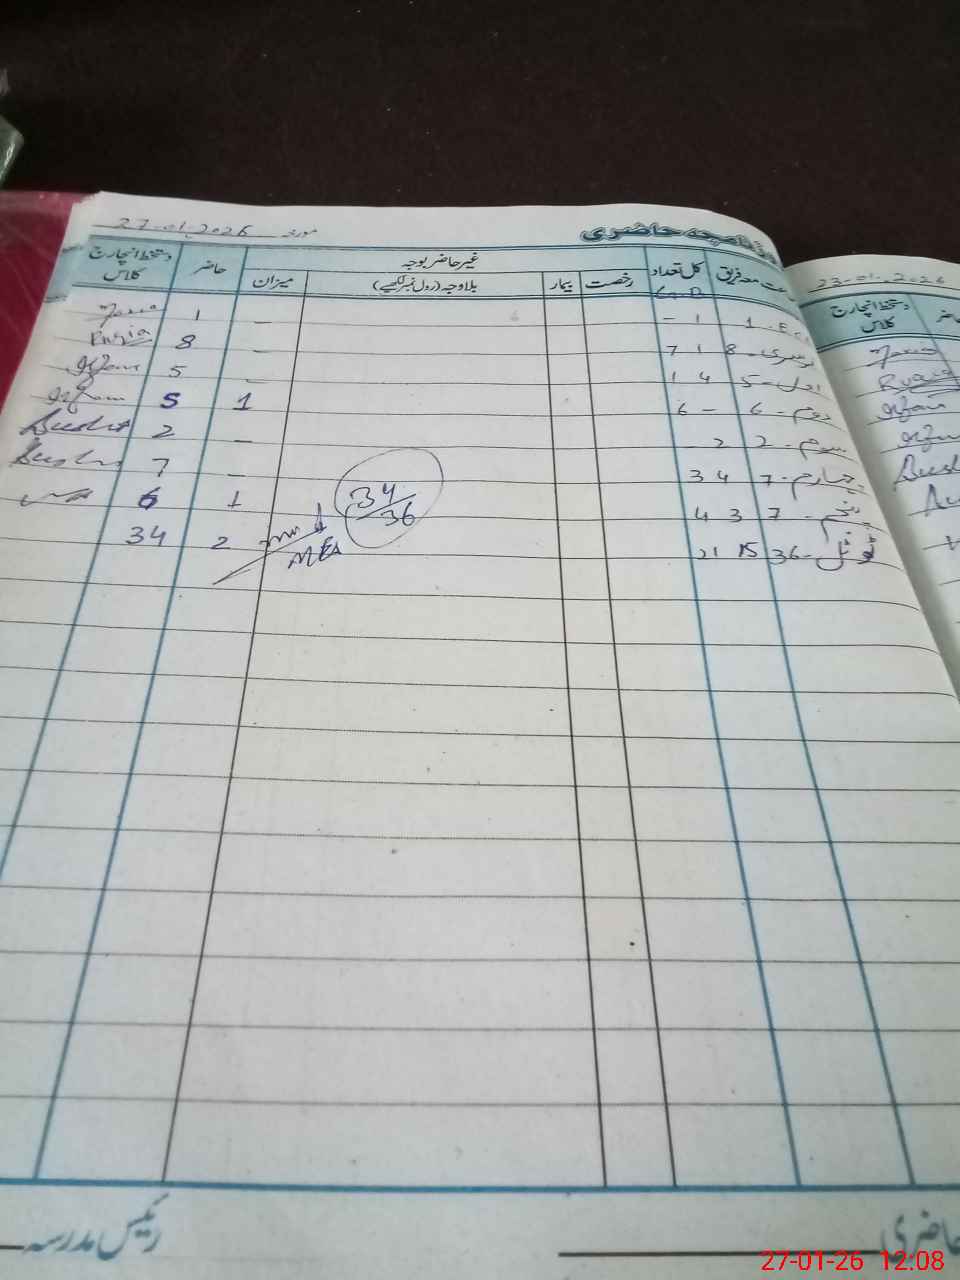 روزنامچہ حاضری مورخہ 27-01-2026
جماعت معہ فریق کل تعداد غیر حاضر بوجہ حاضر دستخط انچارج کلاس
رخصت بیمار بلاوجہ (رول نمبر لکھیے) میزان
G B
1 1 - - 1 Maria
نرسری - 8 1 7 - 8 Ruqia
اول - 5 4 1 - 5 Irfan
دوم - 6 - 6 1 5 Irfan
سوم - 2 2 - 2 Bushra
چہارم - 7 4 3 - 7 Bushra
پنجم - 7 3 4 1 6
ٹوٹل - 36 15 21 2 34
34/36
MEA
حاضری رئیس مدرسہ
23-01-2026
دستخط انچارج کلاس
Maria
Ruqia
Irfan
27-01-26 12:08